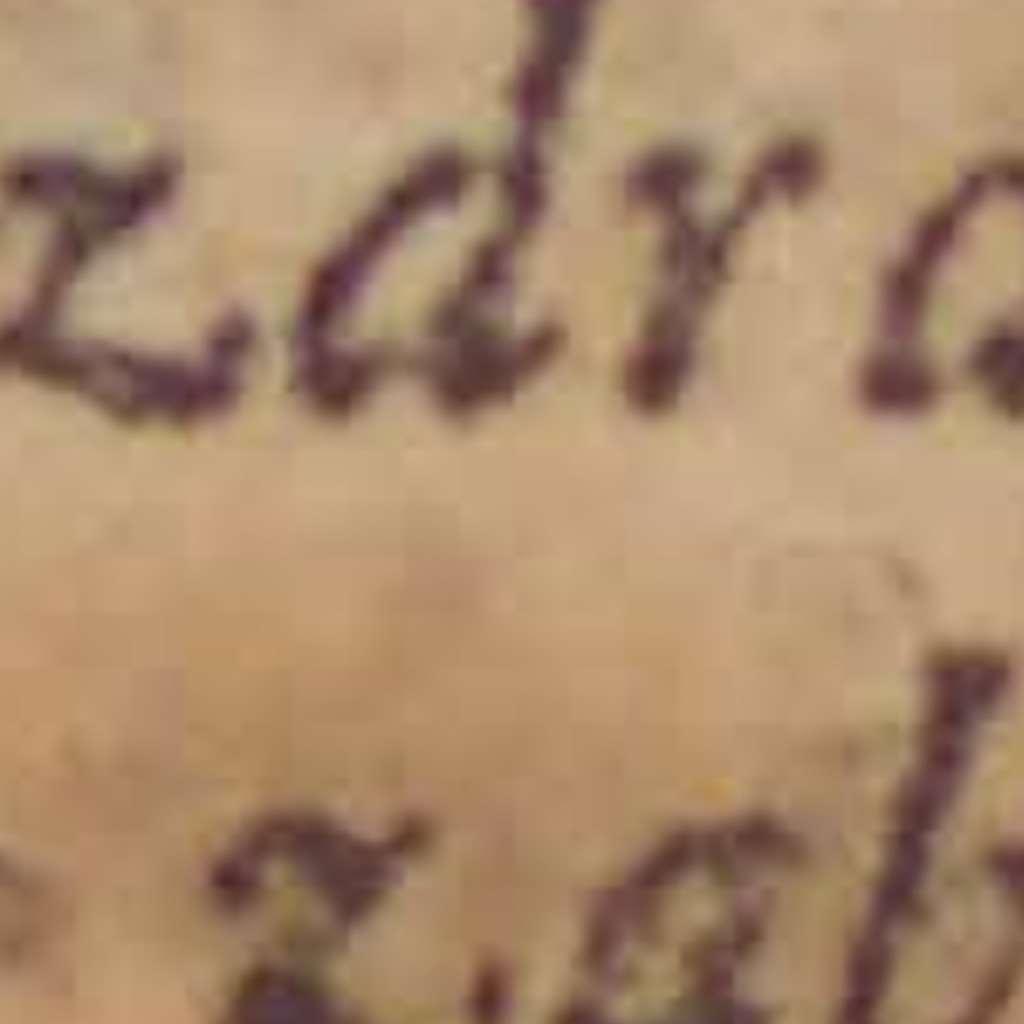 zdra
zab